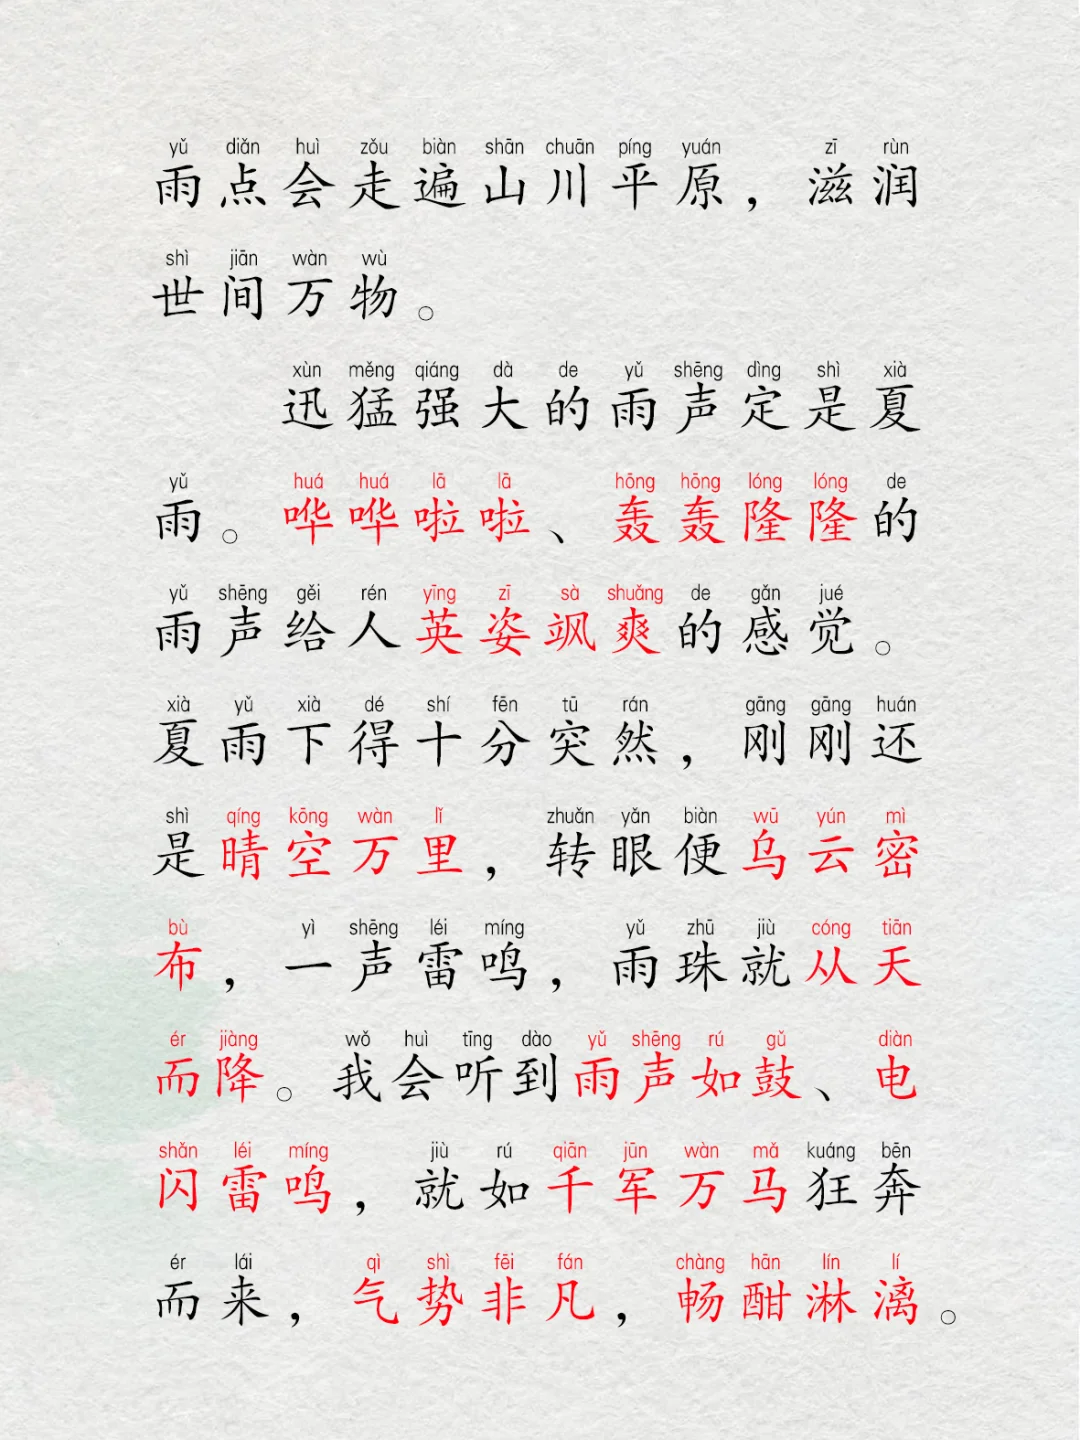 yǔ diǎn huì zǒu biàn shān chuān píng yuán zī rùn
雨点会走遍山川平原，滋润
shì jiān wàn wù
世间万物。
xùn měng qiáng dà de yǔ shēng dìng shì xià
迅猛强大的雨声定是夏
yǔ huá huá lā lā hōng hōng lóng lóng de
雨。哗哗啦啦、轰轰隆隆的
yǔ shēng gěi rén yīng zī sà shuǎng de gǎn jué
雨声给人英姿飒爽的感觉。
xià yǔ xià dé shí fēn tū rán gāng gāng huán
夏雨下得十分突然，刚刚还
shì qíng kōng wàn lǐ zhuǎn yǎn biàn wū yún mì
是晴空万里，转眼便乌云密
bù yì shēng léi míng yǔ zhū jiù cóng tiān
布，一声雷鸣，雨珠就从天
ér jiàng wǒ huì tīng dào yǔ shēng rú gǔ diàn
而降。我会听到雨声如鼓、电
shǎn léi míng jiù rú qiān jūn wàn mǎ kuáng bēn
闪雷鸣，就如千军万马狂奔
ér lái qì shì fēi fán chàng hān lín lí
而来，气势非凡，畅酣淋漓。